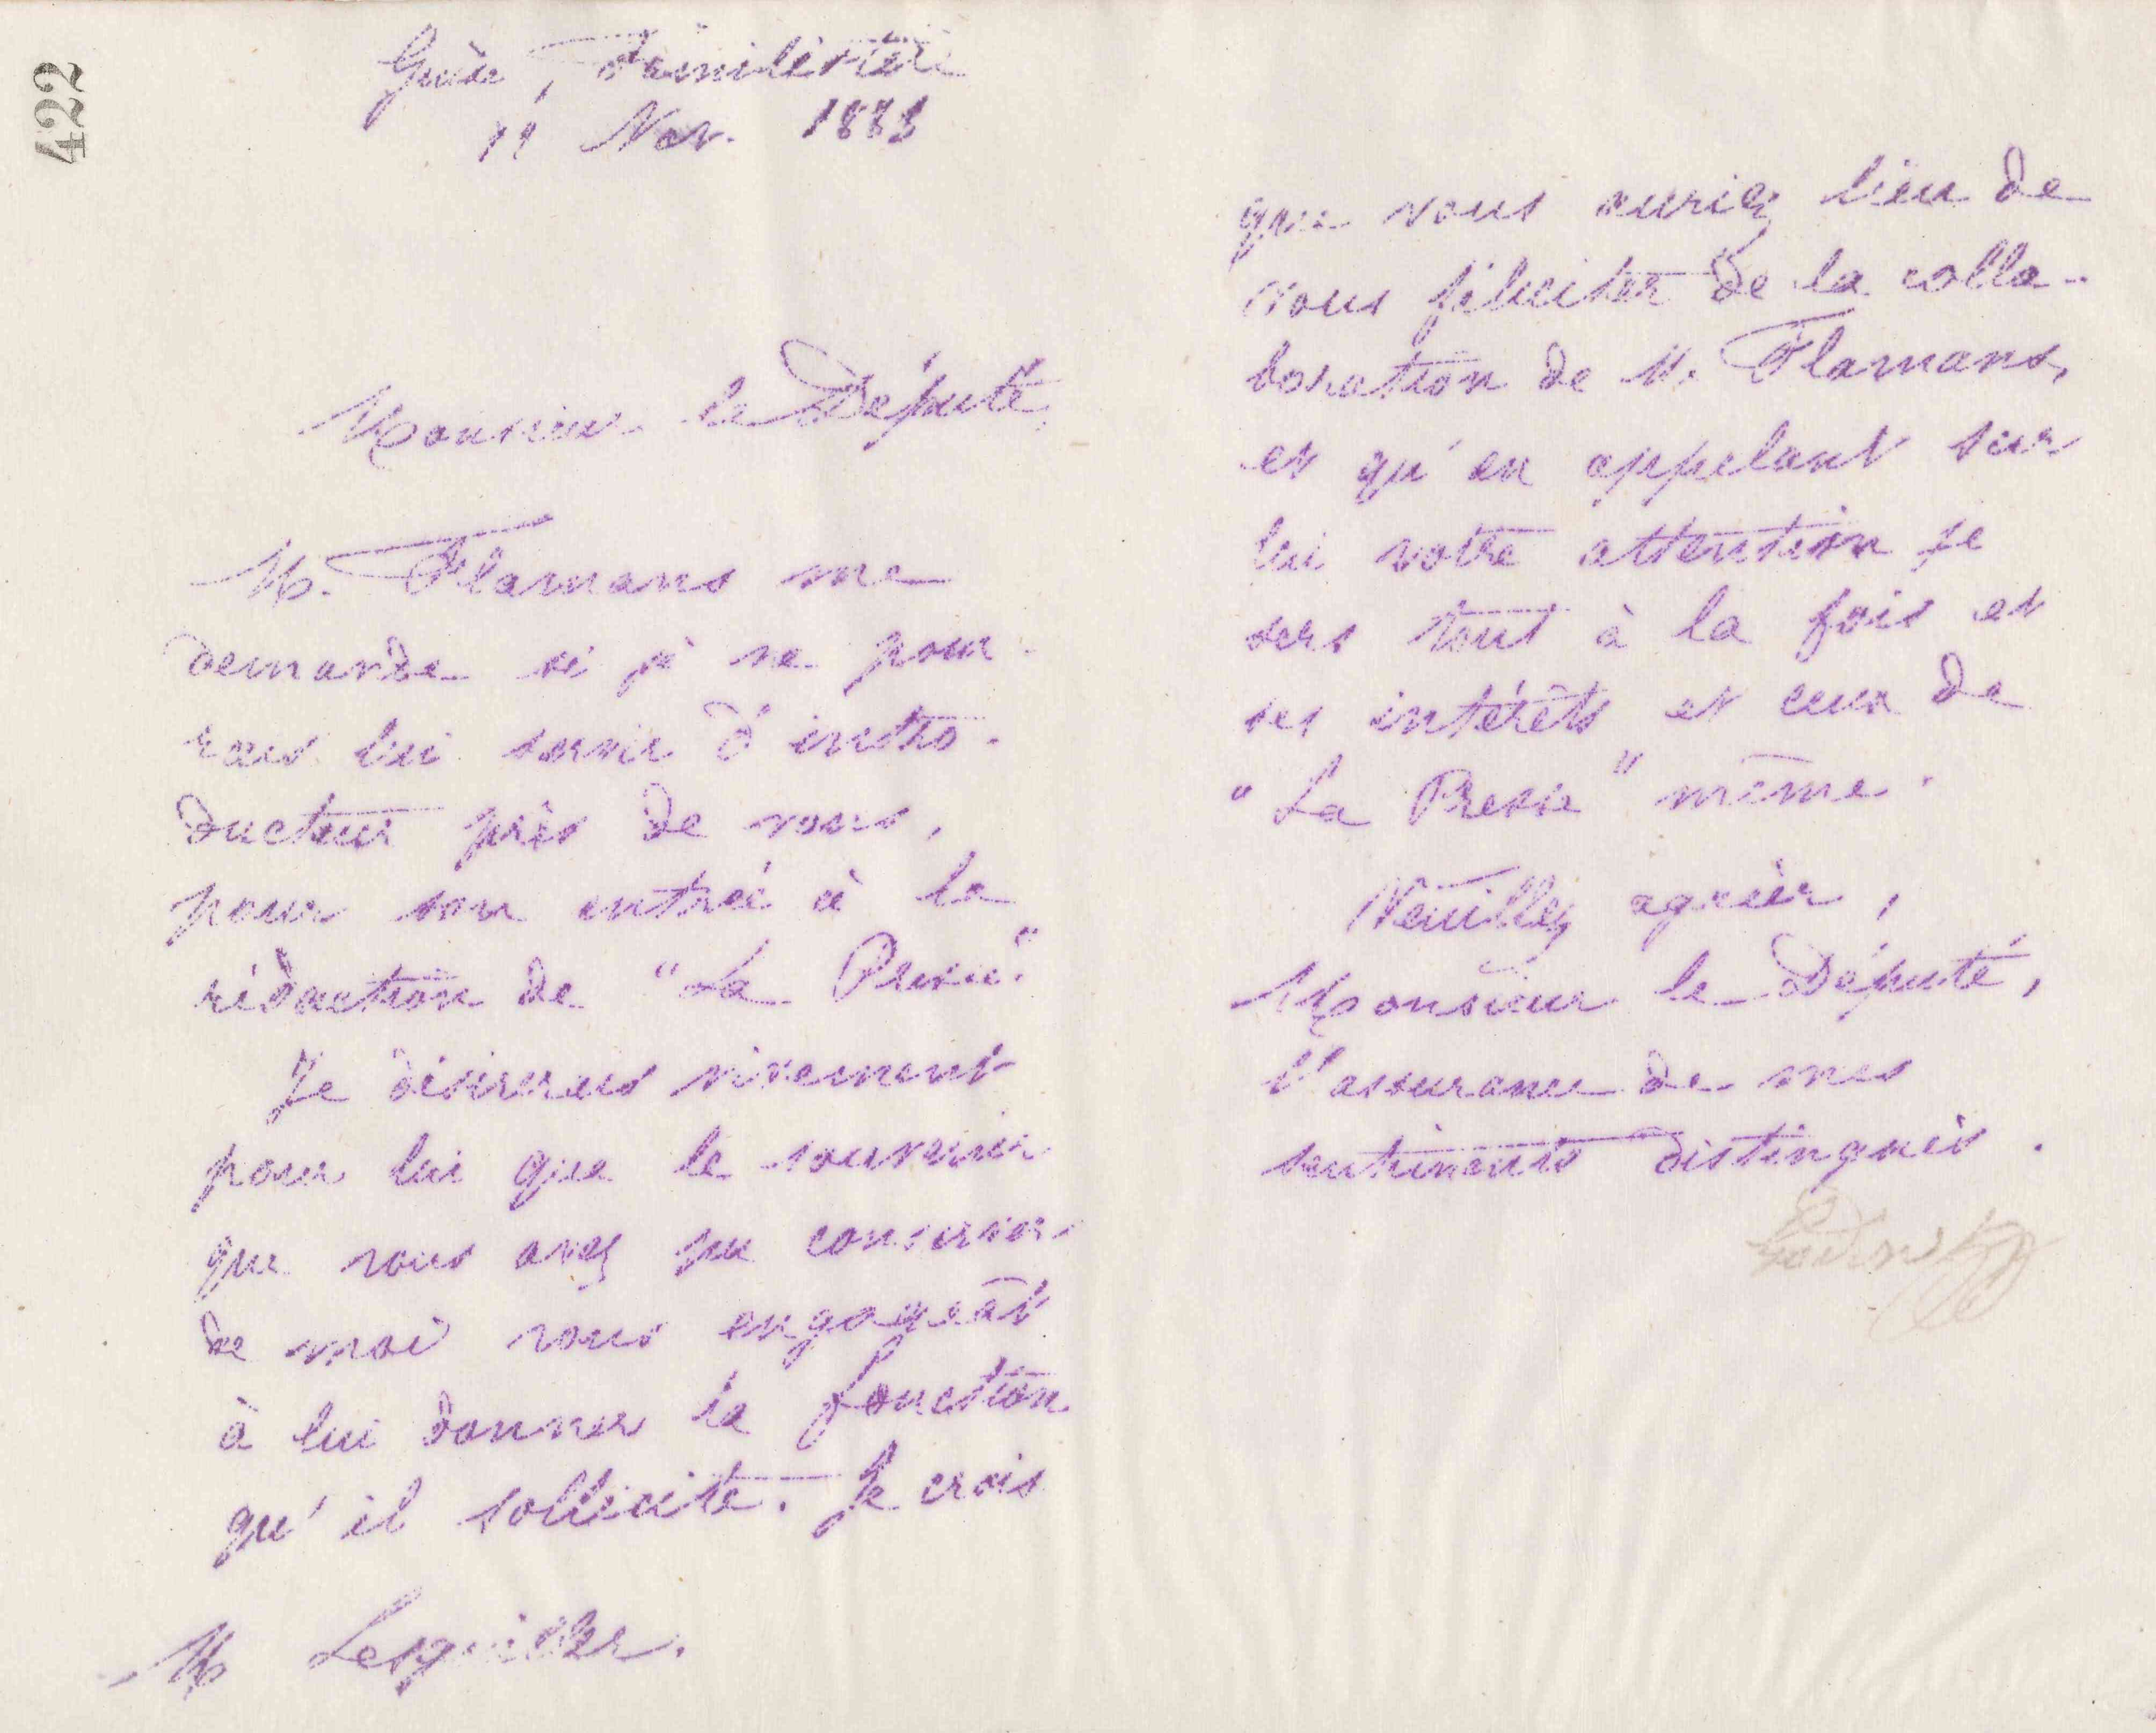 422
Guise, Familistère
11 Nov. 1883
Monsieur le Député,
M. Flamans me
demande si je ne pour-
rais lui servir d'intro-
ducteur près de vous,
pour son entrée à la
rédaction de "La Presse".
Je désirerais vivement
pour lui que le souvenir
que vous avez pu conserver
de moi vous engageât
à lui donner la fonction
qu'il sollicite. Je crois
M Lesguiller.
que vous auriez lieu de
vous féliciter de la colla-
boration de M. Flamans,
et qu'en appelant sur
lui votre attention je
sers tout à la fois et
ses intérêts et ceux de
"La Presse" même.
Veuillez agréer,
Monsieur le Député,
l'assurance de mes
sentiments distingués.
Godin